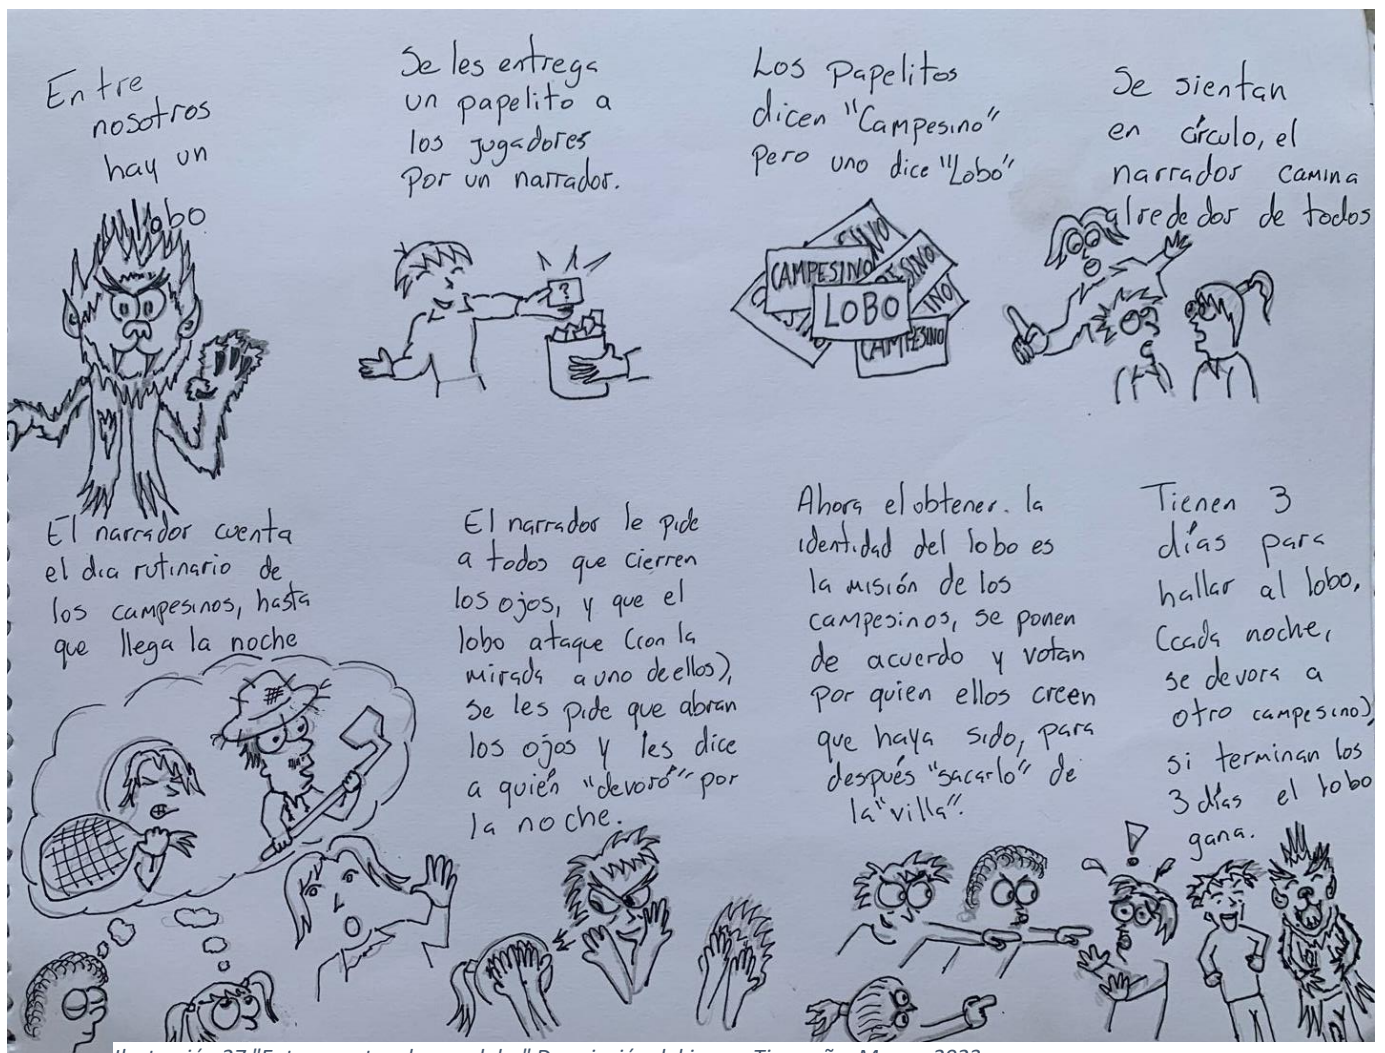 Entre
nosotros
hay un
lobo
Se les entrega
un papelito a
los jugadores
por un narrador.
?
Los Papelitos
dicen "Campesino"
pero uno dice "Lobo"
SINO
CAMPESINO
ESINO
LOBO
INO
CAMPESINO
Se sientan
en círculo, el
narrador camina
alrededor de todos
El narrador cuenta
el dia rutinario de
los campesinos, hasta
que llega la noche
El narrador le pide
a todos que cierren
los ojos, y que el
lobo ataque (con la
mirada a uno de ellos),
se les pide que abran
los ojos y les dice
a quién "devoró" por
la noche.
Ahora el obtener. la
identidad del lobo es
la misión de los
campesinos, se ponen
de acuerdo y votan
por quien ellos creen
que haya sido, para
después "sacarlo" de
la "villa".
Tienen 3
días para
hallar al lobo,
(cada noche,
se devora a
otro campesino),
si terminan los
3 días el lobo
gana.
!